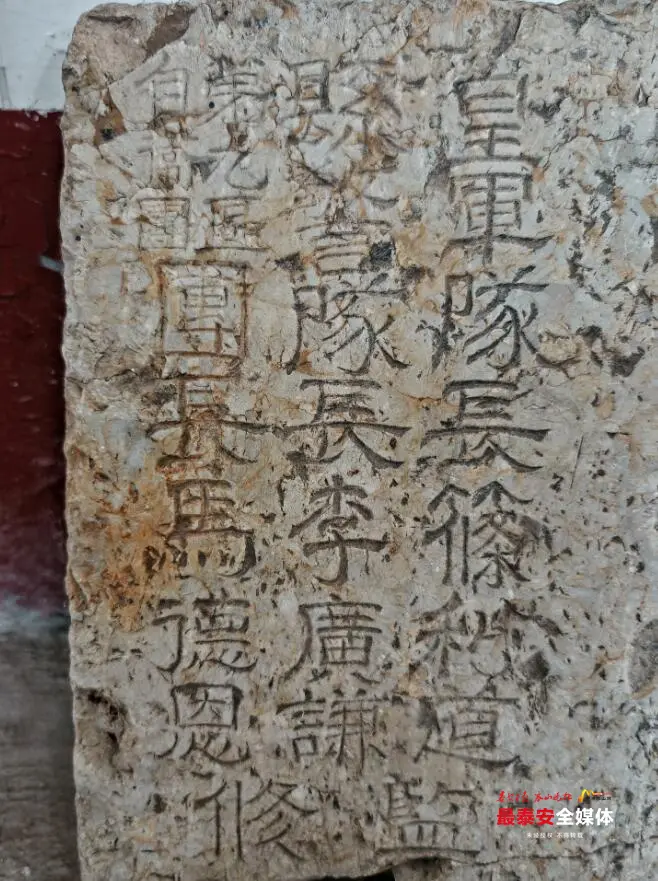 皇軍隊長篠道
縣警隊長李廣謙
第九區
自衛團
團長馬德恩
監修
最泰安全媒体
未经授权 不得转载